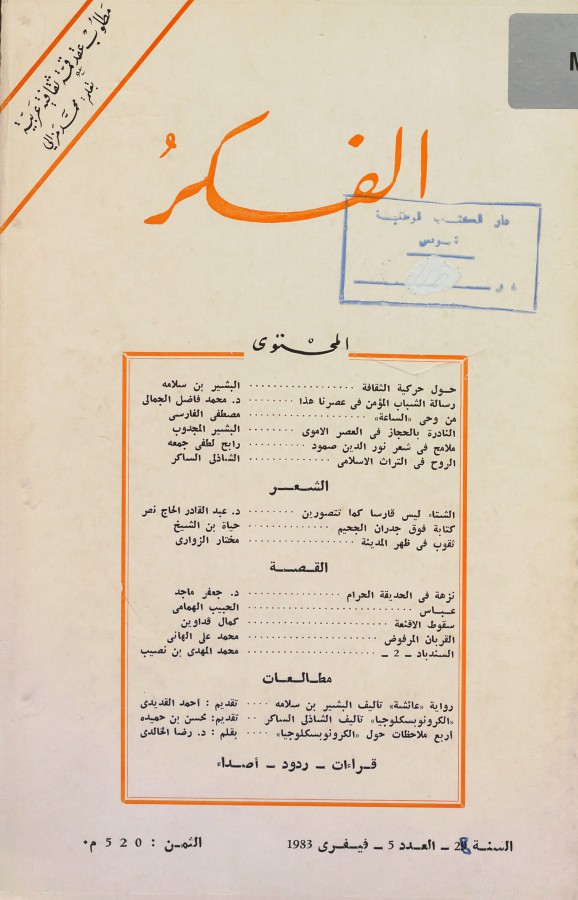 مطلوب عقد قمة ثقافية عربية
بقلم : محمد مزالي
M
الفكر
دار الكتب الوطنية
تونس
المحتوى
حول حركية الثقافة ...... البشير بن سلامه
رسالة الشباب المؤمن فى عصرنا هذا ...... د. محمد فاضل الجمالى
من وحى «الساعة» ...... مصطفى الفارسى
النادرة بالحجاز فى العصر الاموى ...... البشير المجدوب
ملامح فى شعر نور الدين صمود ...... رابح لطفى جمعه
الروح فى التراث الاسلامى ...... الشاذلى الساكر
الشعر
الشتاء ليس قارسا كما تتصورين ...... د. عبد القادر الحاج نصر
كتابة فوق جدران الجحيم ...... حياة بن الشيخ
ثقوب فى ظهر المدينة ...... مختار الزوارى
القصة
نزهة فى الحديقة الحرام ...... د. جعفر ماجد
عباس ...... الحبيب الهمامى
سقوط الاقنعة ...... كمال قداوين
القربان المرفوض ...... محمد على الهانى
السندباد ــ 2 ــ ...... محمد المهدى بن نصيب
مطالعات
رواية «عائشة» تاليف البشير بن سلامه .... تقديم : أحمد القديدى
«الكرونوبسكلوجيا» تاليف الشاذلى الساكر .. تقديم : محسن بن حميده
أربع ملاحظات حول «الكرونوبسكلوجيا» .... بقلم : د. رضا الخالدى
قراءات ــ ردود ــ أصداء
السنة 28 ــ العدد 5 ــ فيفرى 1983
الثمن : 520 م.